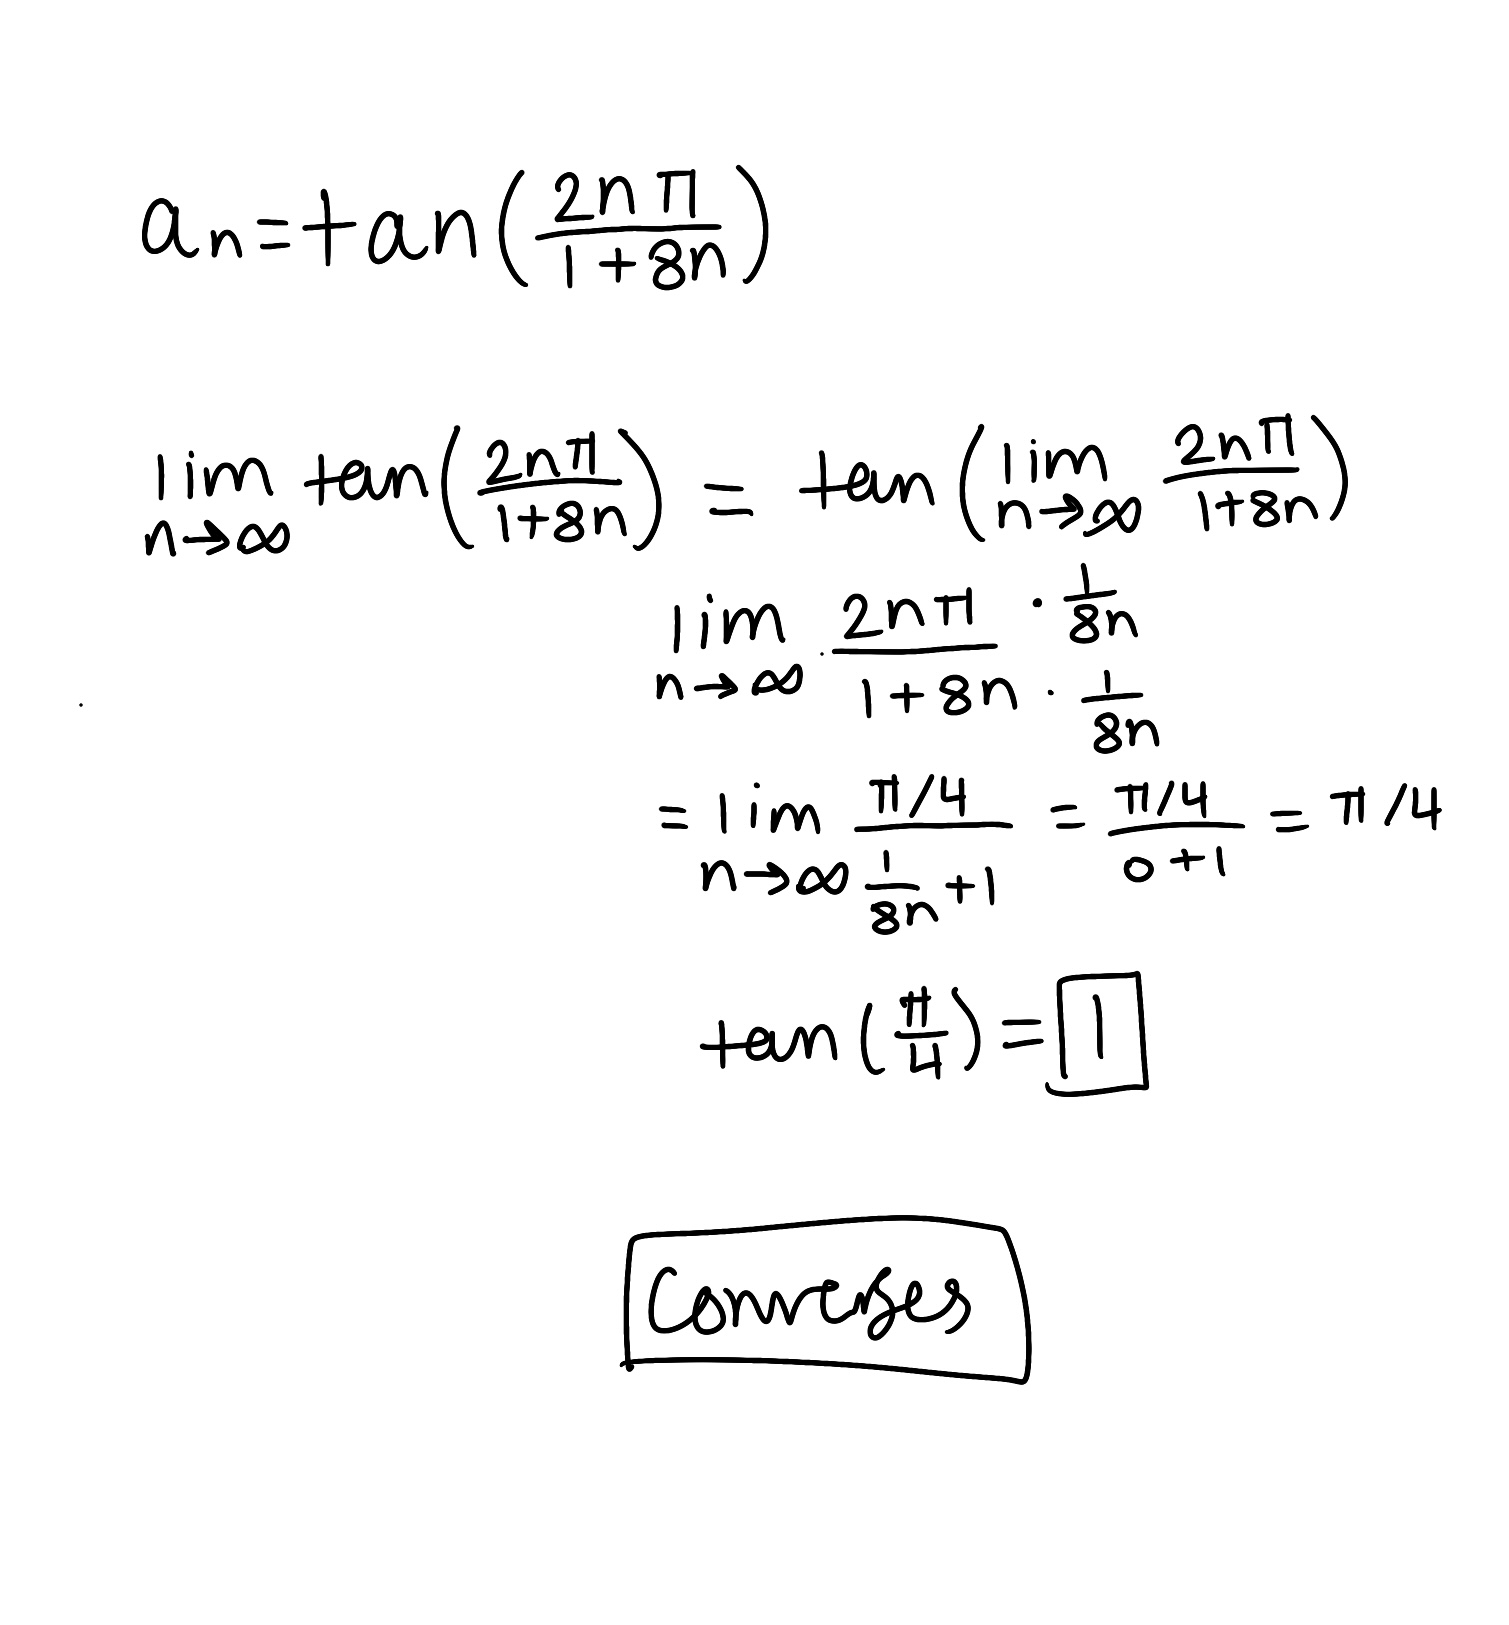 aₙ = tan(2nπ/(1+8n))
lim n→∞ tan(2nπ/(1+8n)) = tan(lim n→∞ 2nπ/(1+8n))
lim n→∞ (2nπ · 1/8n)/(1+8n · 1/8n)
= lim n→∞ (π/4)/(1/8n + 1) = (π/4)/(0+1) = π/4
tan(π/4) = 1
Converges